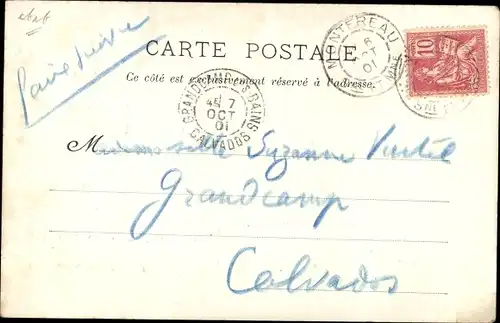 CARTE POSTALE
Ce côté est exclusivement réservé à l'adresse.
MONTEREAU
OCT
01
10
GRANDCAMP-LES-BAINS
7
OCT
01
CALVADOS
Mademoiselle Suzanne
Grandcamp
Calvados